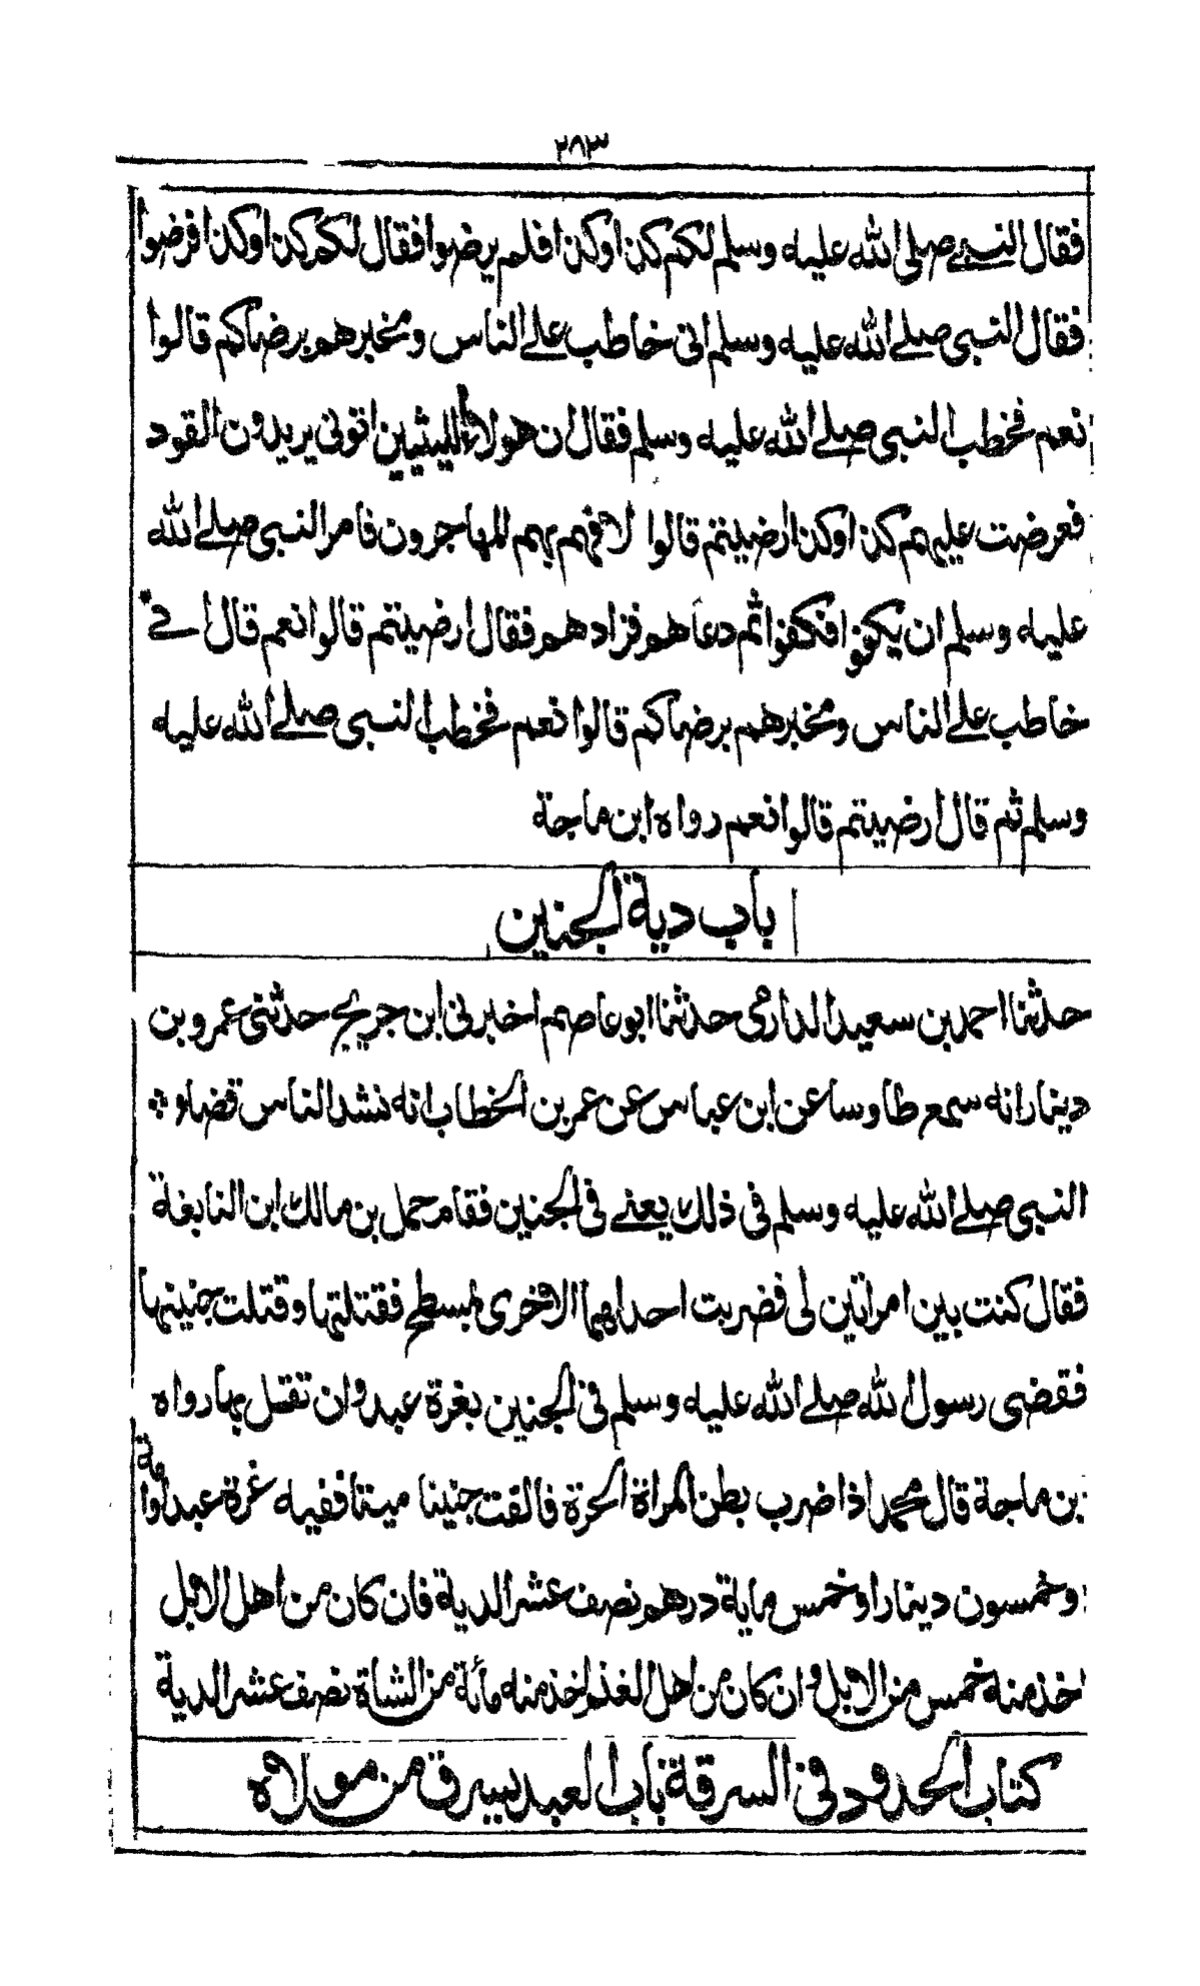 ٢٨٣
فقال النبي صلى الله عليه وسلم لكم كذا وكذا فلم يرضوا فقال لكم كذا وكذا فرضوا
فقال النبي صلى الله عليه وسلم اني خاطب على الناس ومخبرهم برضاكم قالوا
نعم فخطب النبي صلى الله عليه وسلم فقال ان هولاء الليثيين اتوني يريدون القود
فعرضت عليهم كذا وكذا ارضيتم قالوا لا فهم بهم المهاجرون فامر النبي صلى الله
عليه وسلم ان يكفوا فكفوا ثم دعاهم فزادهم فقال ارضيتم قالوا نعم قال اني
خاطب على الناس ومخبرهم برضاكم قالوا نعم فخطب النبي صلى الله عليه
وسلم ثم قال ارضيتم قالوا نعم رواه ابن ماجة
باب دية الجنين
حدثنا احمد بن سعيد الدارمي حدثنا ابو عاصم اخبرني ابن جريج حدثني عمرو بن
دينار انه سمع طاوسا عن ابن عباس عن عمر بن الخطاب انه نشد الناس قضاء
النبي صلى الله عليه وسلم في ذلك يعني في الجنين فقام حمل بن مالك ابن النابغة
فقال كنت بين امراتين لي فضربت احداهما الاخرى بمسطح فقتلتها وقتلت جنينها
فقضى رسول الله صلى الله عليه وسلم في الجنين بغرة عبد وان تقتل بها رواه
بن ماجة قال محمد اذا ضرب بطن المراة الحرة فالقت جنينا ميتا ففيه غرة عبد او امة
وخمسون دينارا وخمس ماية درهم نصف عشر الدية فان كان من اهل الابل
اخذ منه خمس من الابل وان كان من اهل الغنم اخذ منه مائة من الشاة نصف عشر الدية
كتاب الحدود في السرقة باب العبد يسرق من مولاه